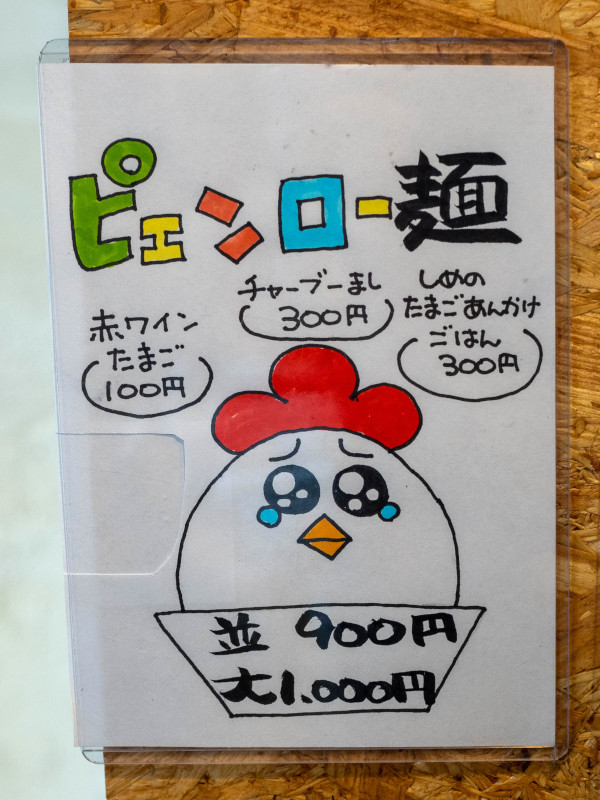 ピェンロー麺
赤ワイン
たまご
100円
チャーブーまし
300円
しめの
たまごあんかけ
ごはん
300円
並 900円
大1.000円